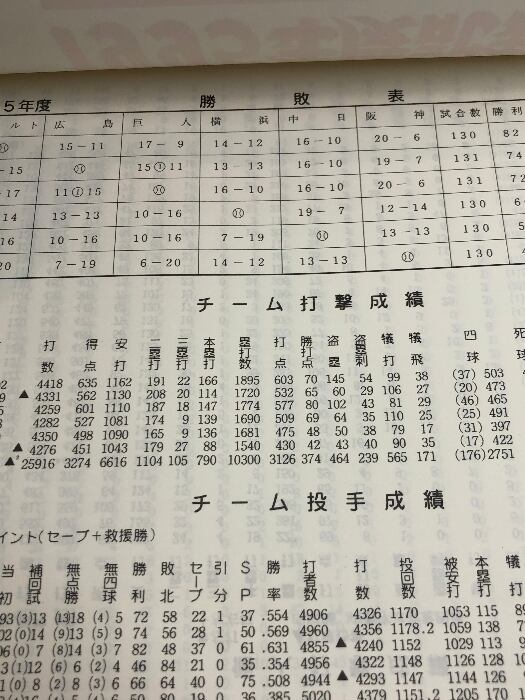 5年度 勝敗表
ルト 広島 巨人 横浜 中日 阪神 試合数 勝利
15－11 17－9 14－12 16－10 20－6 130 82
－15 15①11 13－13 16－10 19－7 131 74
－17 11①15 16－10 16－10 20－6 131 72
14 13－13 10－16 19－7 12－14 130
16 10－16 10－16 7－19 13－13 130
20 7－19 6－20 14－12 13－13 130
チーム打撃成績
打数 得点 安打 二塁打 三塁打 本塁打 塁打数 打点 勝利打点 盗塁 盗塁刺 犠打 犠飛 四球 死球
4418 635 1162 191 22 166 1895 603 70 145 54 99 38 (37) 503
▲ 4331 562 1130 208 20 114 1720 532 65 60 29 106 27 (20) 473
4259 601 1110 187 18 147 1774 577 80 102 43 81 29 (46) 465
4282 527 1081 174 9 139 1690 509 69 64 35 110 25 (25) 491
4350 498 1090 165 9 136 1681 475 48 50 38 79 17 (31) 397
▲ 4276 451 1043 179 27 88 1540 430 42 43 40 90 35 (17) 422
25916 3274 6616 1104 105 790 10300 3126 374 464 239 565 171 (176) 2751
チーム投手成績
イント(セーブ+救援勝)
当初 補回試 無点勝 無四球 勝利 敗北 セーブ 引分 SP 勝率 打者数 打数 投回数 被安打 本塁打
93 (3)13 (13)18 (4) 5 72 58 22 1 37 .554 4906 4326 1170 1053 115
02 (0)14 (9)13 (5) 9 74 56 28 1 50 .569 4960 4356 1178.2 1059 138
06 (0) 7 (8)14 (3) 7 82 48 37 0 61 .631 4855 ▲ 4240 1152 1029 113
3 (1)12 (6) 6 (2) 4 46 84 21 0 35 .354 4956 4322 1148 1126 128
1 (0) 8 (2) 8 (3) 6 66 64 40 0 75 .508 4944 ▲ 4293 1147 1144 126
50 80 19 0 36 .385 5020 4379 1151